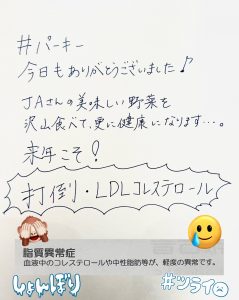 #パーキー
今日もありがとうございました♪
JAさんの美味しい野菜を
沢山食べて、更に健康になります…。
来年こそ!
打倒・LDLコレステロール
脂質異常症
血液中のコレステロールや中性脂肪等が、軽度の異常です。
しょんぼり
#ツライ